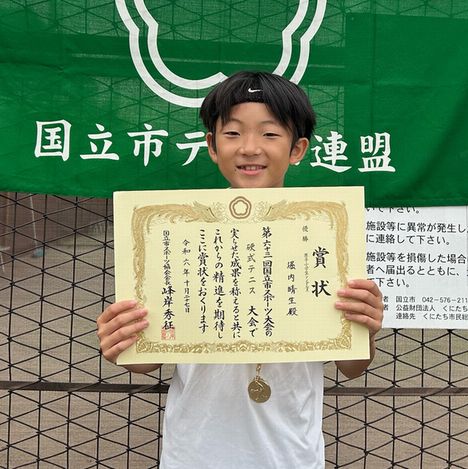 国立市テ
連盟
賞状
優勝
堀内晴生殿
第六十三回国立市スポーツ大会の
硬式テニス大会で
実らせた成果を称えると共に
これからの精進を期待し
ここに賞状をおくります
令和六年十月二十七日
国立市スポーツ協会会長
峰岸秀征
施設等に異常が発生し
に連絡して下さい。
施設等を損傷した場合
者へ届出るとともに、
者 国立市 042-576-211
者 公益財団法人 くにた
連絡先 くにたち市民総